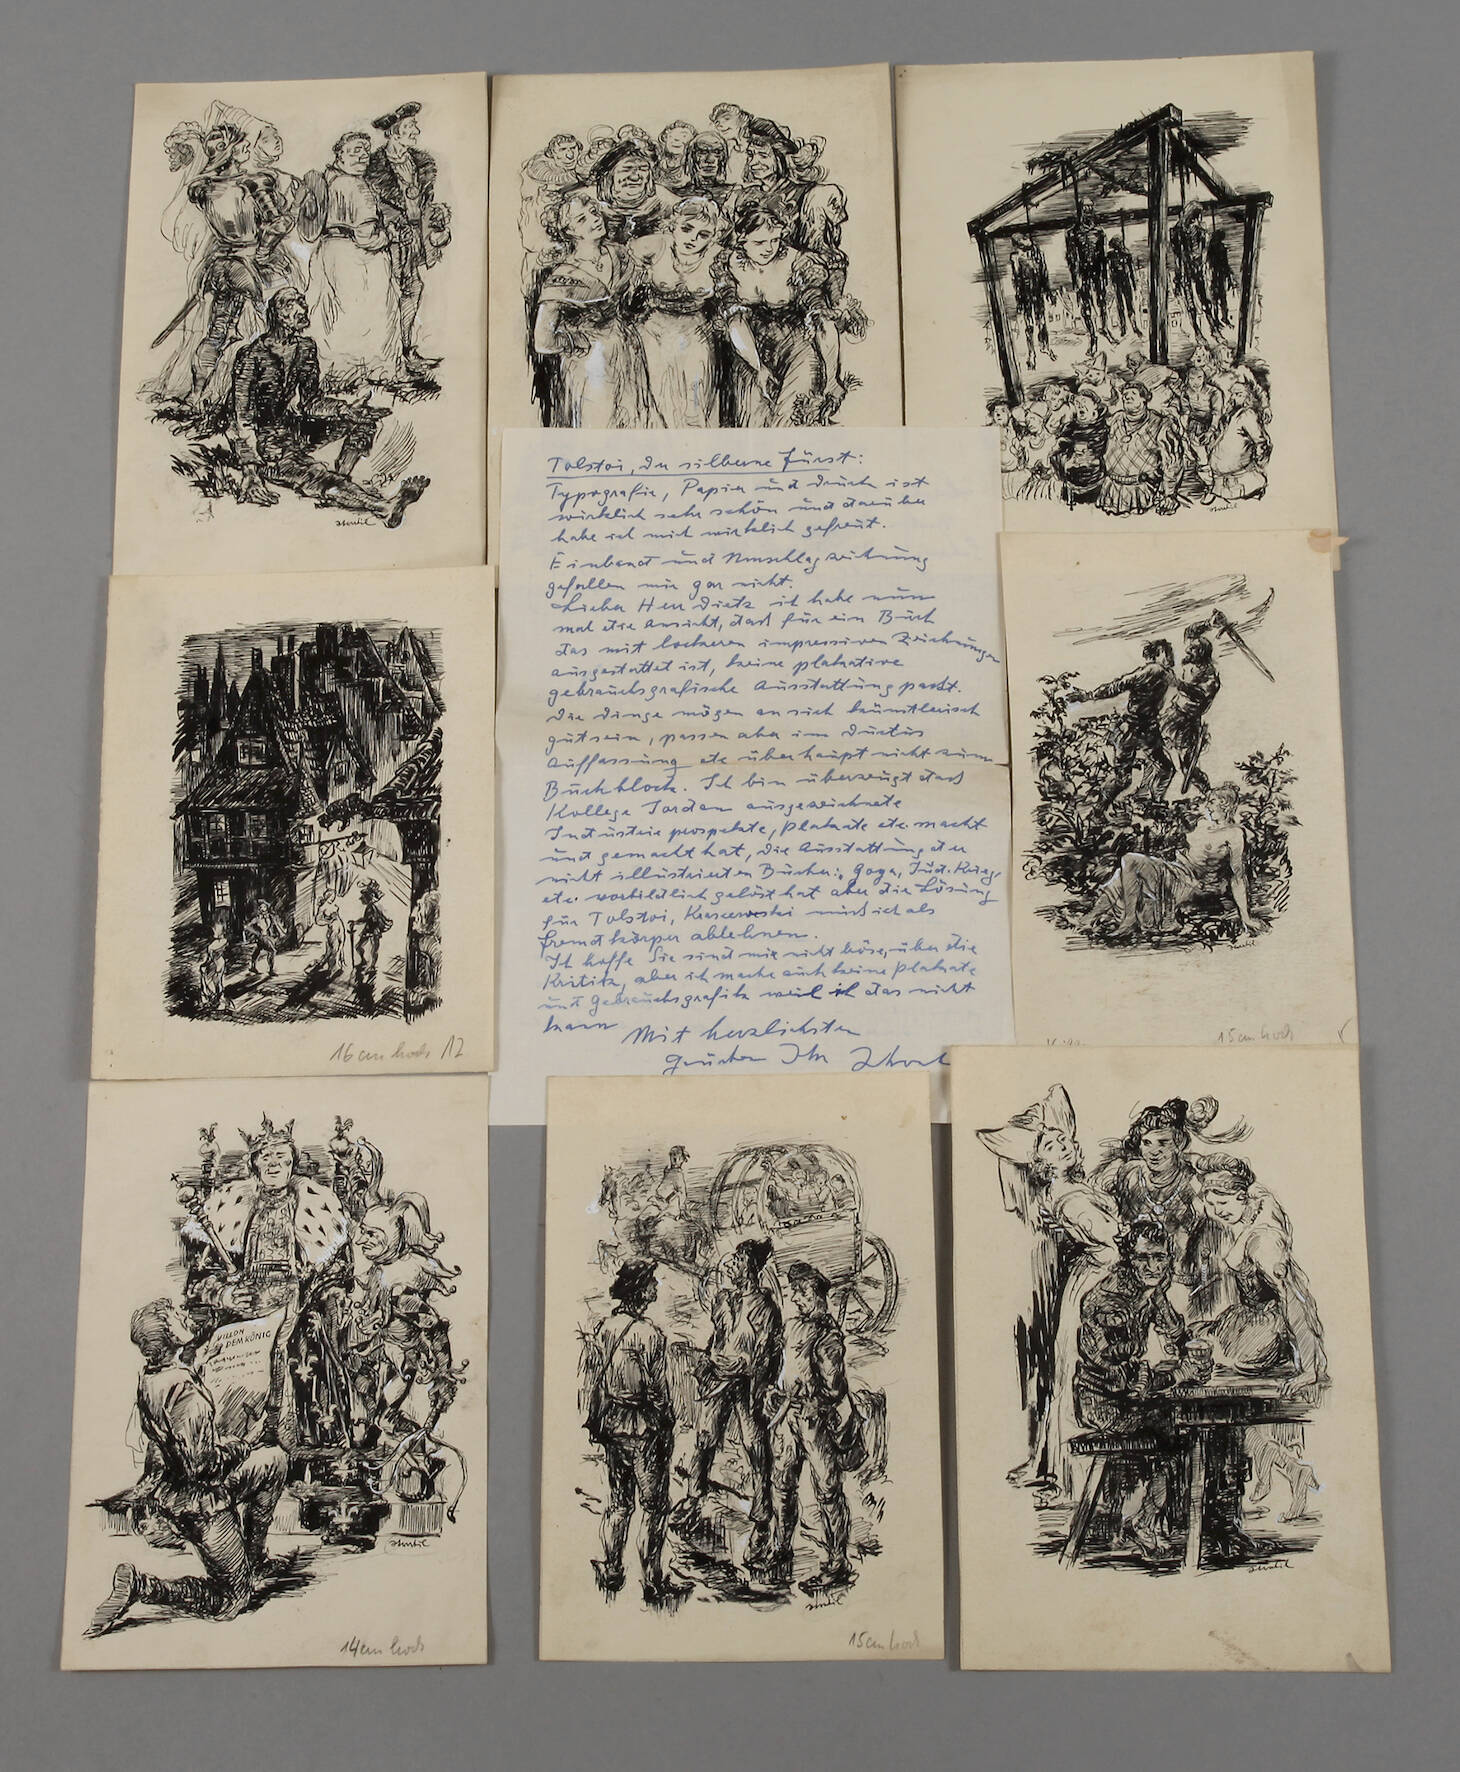 Tolstoi, der silberne Fürst:
Typografie, Papier und Druck ist
wirklich sehr schön und darüber
habe ich mich wirklich gefreut.
Einband und Umschlagzeichnung
gefallen mir gar nicht.
Lieber Herr Dietz ich habe nun
mal die Ansicht, dass für ein Buch
das mit lockeren impressiven Zeichnungen
ausgestattet ist, keine plakative
gebrauchsgrafische Ausstattung passt.
Die Dinge mögen an sich künstlerisch
gut sein, passen aber im Duktus
Auffassung etc überhaupt nicht zum
Buchblock. Ich bin überzeugt dass
Kollege Jordan ausgezeichnete
Industrieprospekte, Plakate etc. macht
und gemacht hat, die Ausstattung der
nicht illustrierten Bücher: Goya, Jüd. Krieg,
etc. vorbildlich gelöst hat aber die Lösung
für Tolstoi, Kraszewski muss ich als
Fremdkörper ablehnen.
Ich hoffe Sie sind mir nicht böse, über die
Kritik, aber ich mache auch keine Plakate
und Gebrauchsgrafik weil ich das nicht
kann
Mit herzlichsten
Grüssen Ihr
16 cm hoch 12
15 cm hoch
VILLON
DEM KÖNIG
14 cm hoch
15 cm hoch